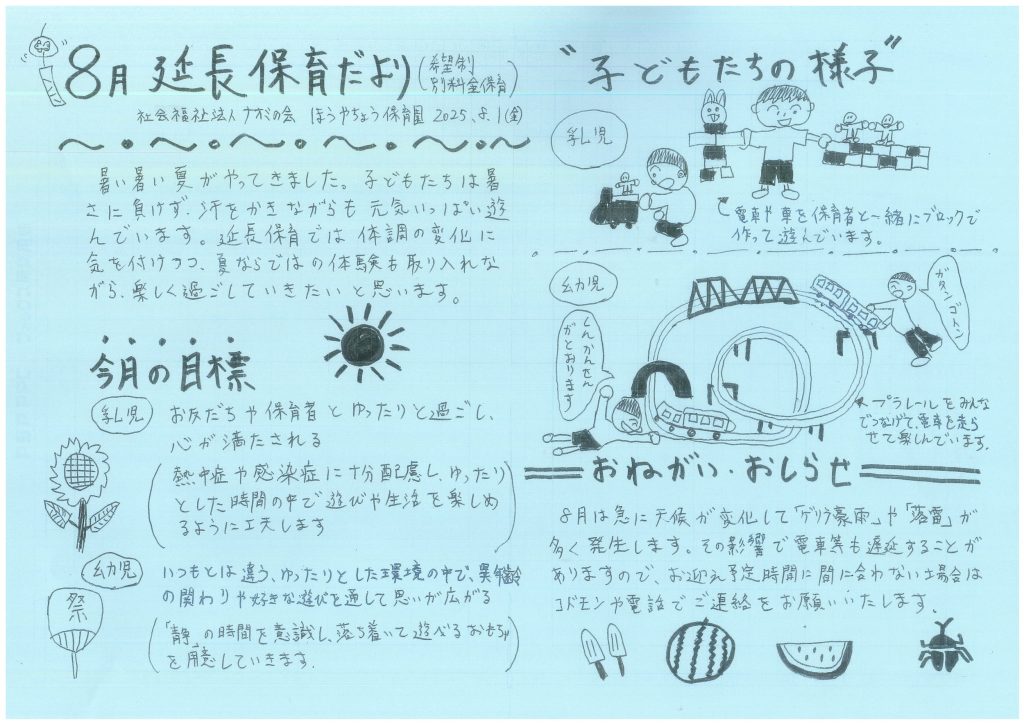 8月 延長保育だより(希望制 別料金保育)
社会福祉法人 ナオミの会 ほうやちょう保育園 2025.8.1(金)
暑い暑い夏がやってきました。子どもたちは暑
さに負けず、汗をかきながらも元気いっぱい遊
んでいます。延長保育では体調の変化に
気を付けつつ、夏ならではの体験も取り入れな
がら、楽しく過ごしていきたいと思います。
今月の目標
乳児
お友だちや保育者とゆったりと過ごし、
心が満たされる
(熱中症や感染症に十分配慮し、ゆったり
とした時間の中で遊びや生活を楽しめ
るように工夫します)
幼児
いつもとは違う、ゆったりとした環境の中で、異年齢
の関わりや好きな遊びを通して思いが広がる
(「静」の時間を意識し、落ち着いて遊べるおもちゃ
を用意していきます.)
祭
"子どもたちの様子"
乳児
電車や車を保育者と一緒にブロックで
作って遊んでいます。
幼児
ガタンゴトン
しんかんせん
がとおります
プラレールをみんな
でつなげて、電車を走ら
せて楽しんでいます.
おねがい・おしらせ
8月は急に天候が変化して「ゲリラ豪雨」や「落雷」が
多く発生します。その影響で電車等も遅延することが
ありますので、お迎え予定時間に間に合わない場合は
コドモンや電話でご連絡をお願いいたします。